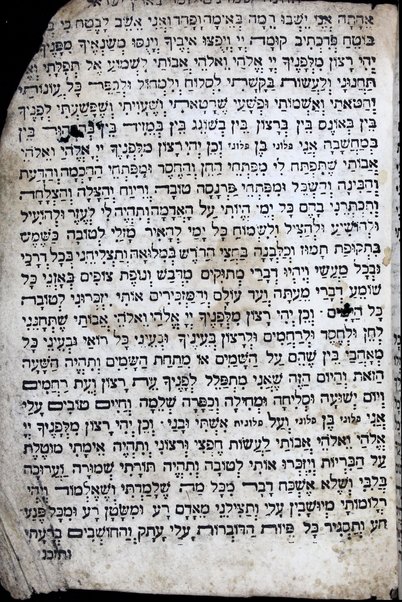 אתה אני ישבו רמה באימה ופחד ואני אשב לבטח ב
בוטח פדכתיב קומה יי ויפצו איביך וינסו משנאיך מפניך
יהי רצון מלפניך יי אלהי ואלהי אבותי לשמוע אל תפלתי
תחנוני ולעשות בקשתי לסלוח ולמחול ולכפר כל עונותי
וחטאתי ואשמותי ופשעי שחטאתי ושעויתי ושפשעתי לפניך
בין באונס בין ברצון בין בשוגג בין במזיד בין בין
במחשבה אני פלוני בן פלוני וכן יהי רצון מלפניך יי אלהי ואלהי
אבותי שתפתח לי מפתחי החן והחסד ומפתחי החכמה והדעת
והבינה והשכל ומפתחי פרנסה טובה וריוח והצלה והצלחה
והכתרני בהם כל ימי היותי על האדמה ותהיה לי לעזר ולהועיל
ולהושיע ולהציל ולשמוח כל ימי להאיר מזלי לטובה כשמש
בתקופת תמוז וכלבנה בחצי החדש במלואה ותצליחני בכל דרכי
ובכל מעשי ויהיו דברי מתוקים מדבש ונופת צופים באזני כל
שומע דברי מעתה ועד עולם והמזכירים אותי יזכרוני לטובה
כל הימים וכן יהי רצון מלפניך יי אלהי ואלהי אבותי שתחנני
לחן ולחסד ולרחמים ולרצון בעיניך ובעיני כל רואי ובעיני כל
מאהבי בין שהם על השמים או מתחת השמים ותהיה השעה
הזאת והיום הזה שאני מתפלל לפניך עת רצון ועת רחמים
ויום ישועה וסליחה ומחילה וכפרה שלמה וחיים טובים עלי
אני פלוני בן פלוני ועל פלונית אשתי ובני וכן יהי רצון מלפניך יי
אלהי ואלהי אבותי לעשות חפצי ורצוני ותהיה אימתי מוטלת
על הבריות ויזכרו אותי לטובה ותהיה תורתי שמורה וערוכה
בלבי ושלא אשכח דבר מכל מה שלמדתי ושאלמוד ויהי
חלומותי מיושבין עלי ותצילני מאדם רע ומשטן רע ומכל פגע
רע ותסגיר כל פיות הדוברות עלי עתק והחושבים ברעתי
ותיכנ